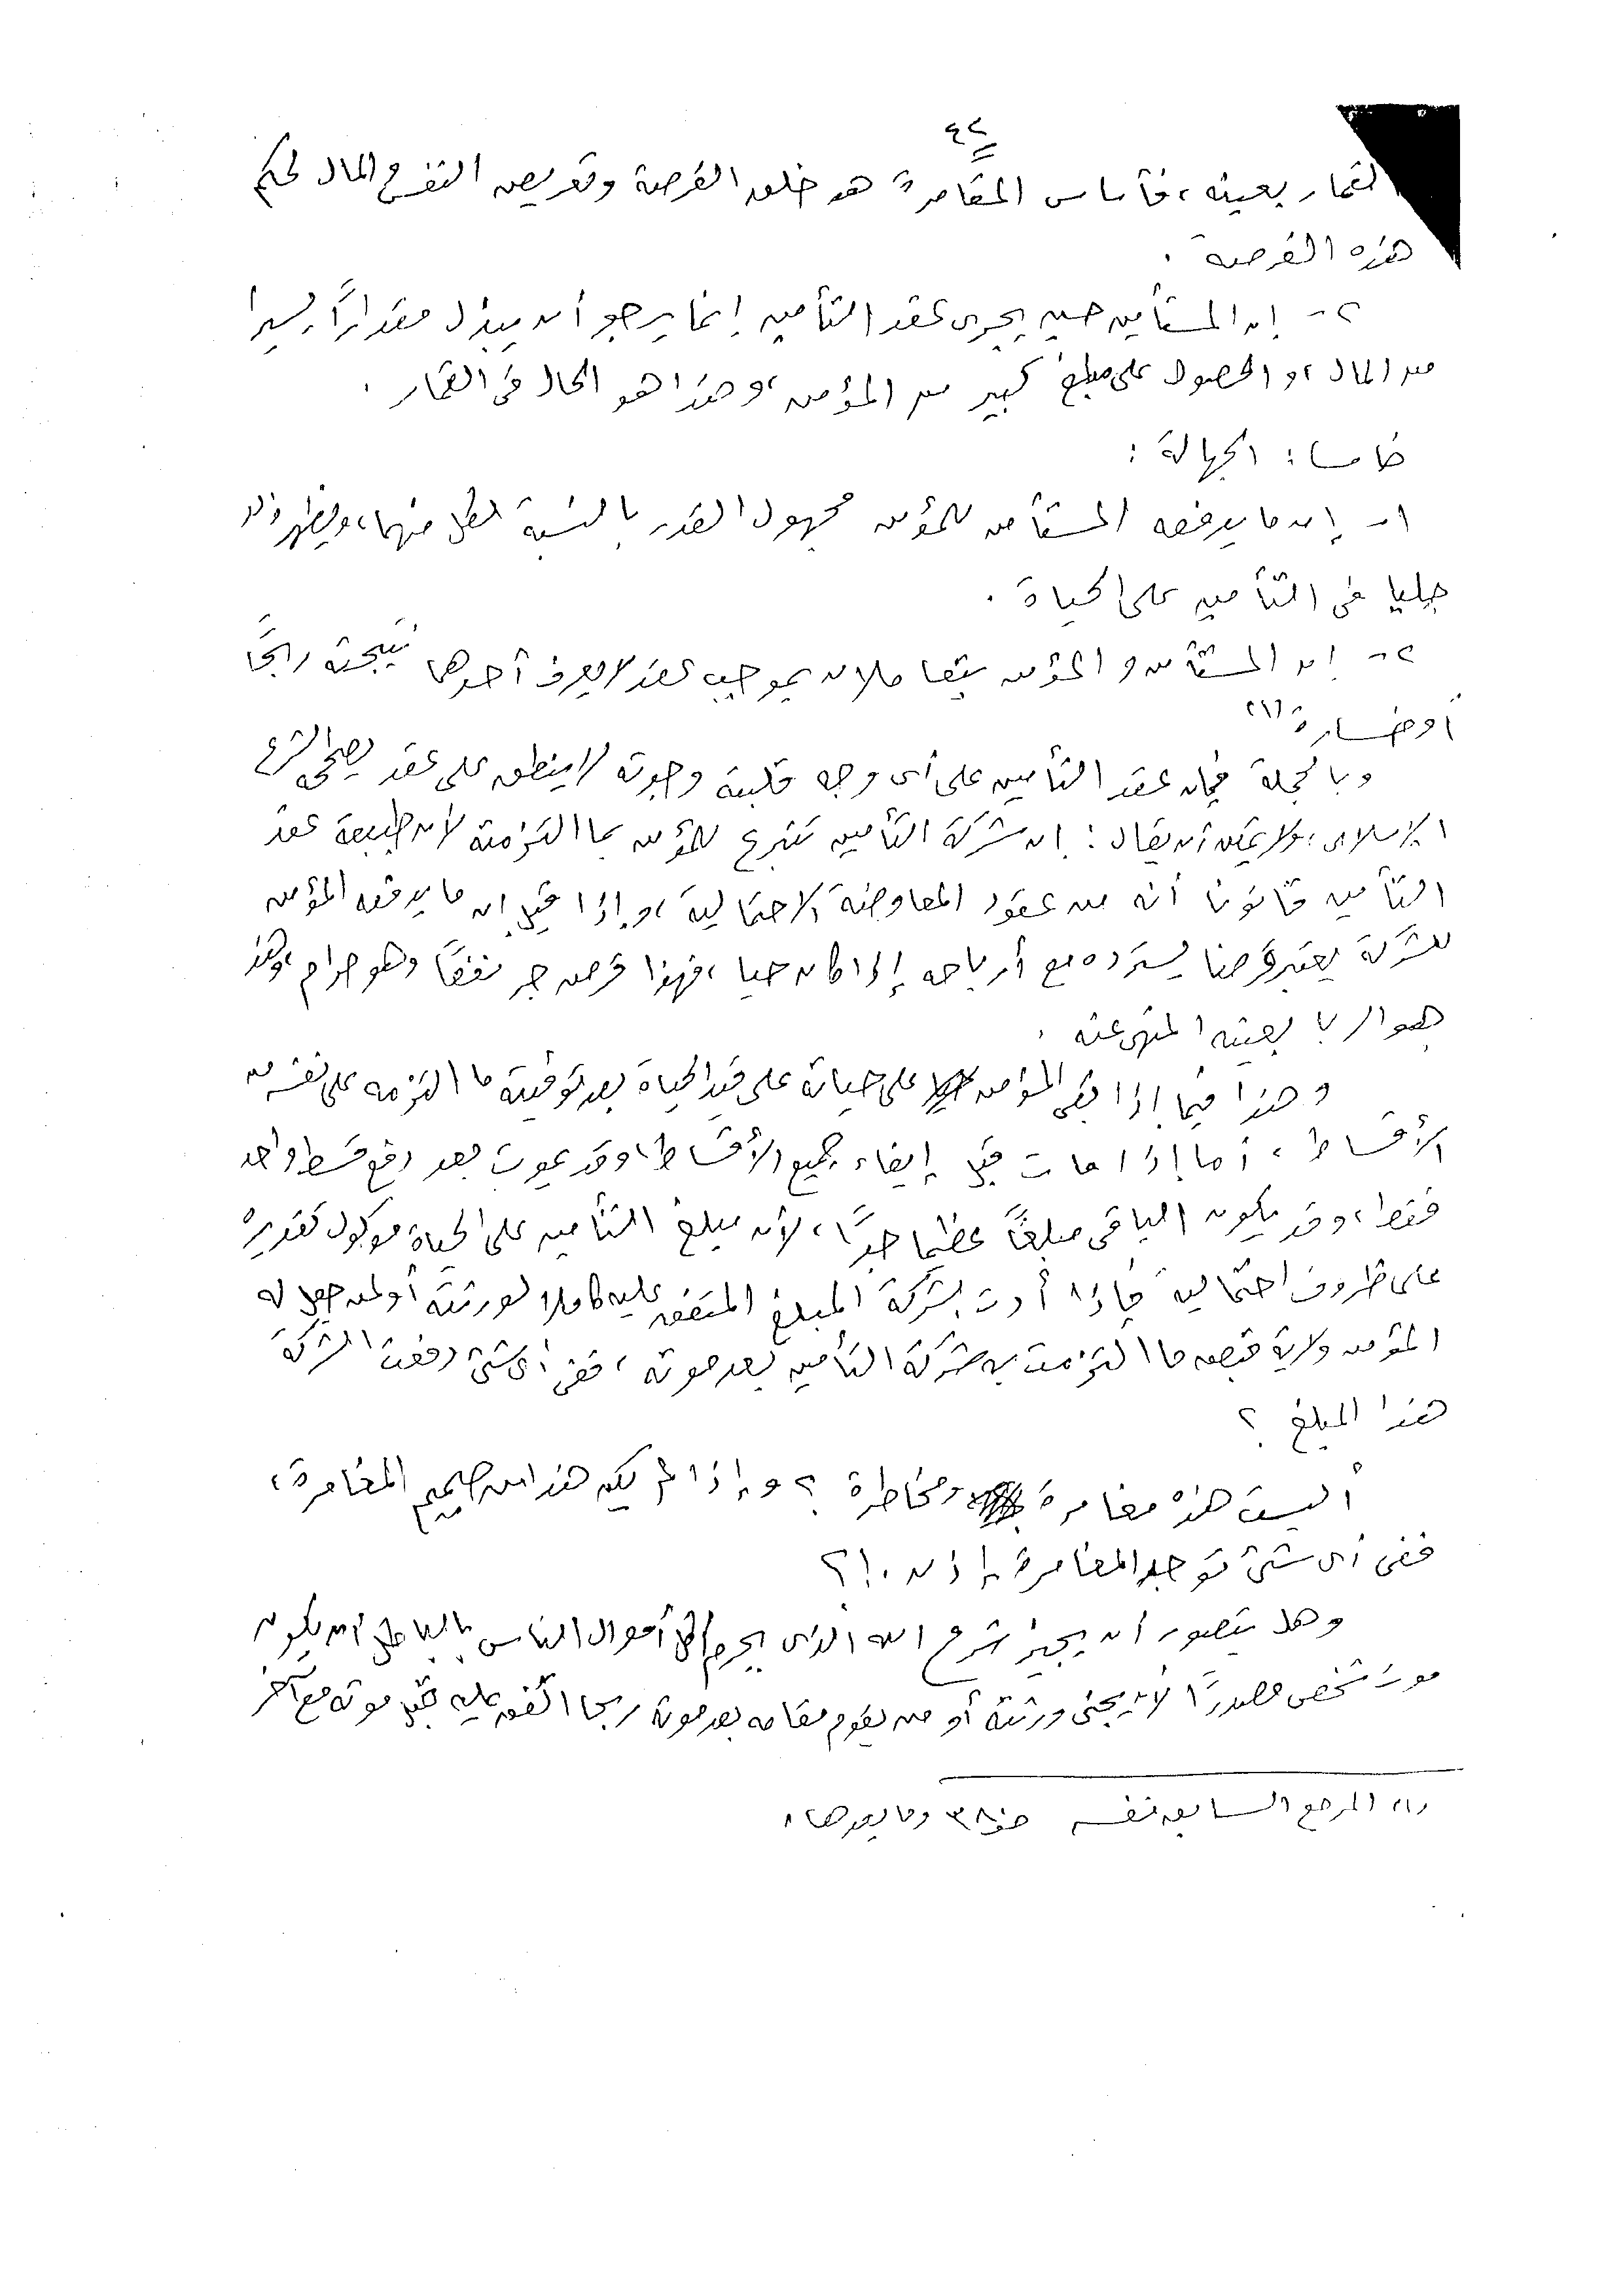 ٤٢
القمار بعينه، فأساس المقامرة هو خلق الفرصة وتعريض النفس والمال لحكم
هذه الفرصة .
٢- إن المستأمن حين يجرى عقد التأمين إنما يرجو أن يبذل مقدارًا يسيرا
من المال، والحصول على مبلغ كبير من المؤمن، وهذا هو الحال فى القمار .
خامسا: الجهالة :
١- إن ما يدفعه المستأمن للمؤمن مجهول القدر بالنسبة لكل منهما، ويظهر ذلك
جليا فى التأمين على الحياة .
٢- إن المستأمن والمؤمن يتعاملان بموجب عقد لا يعرف أحدهما نتيجته ربحًا
أو خسارة (١)
وبالجملة فإن عقد التأمين على أى وجه قلبته وجوته لا ينطبق على عقد يصح فى الشرع
الإسلامى، ولا يمكن أن يقال : إن شركة التأمين تتبرع للمؤمن بما التزمته لأن طبيعة عقد
التأمين قانونا أنه من عقود المعاوضة الاحتمالية، وإذا قيل إن ما يدفعه المؤمن
للشركة يعتبر قرضا يسترده مع أرباحه إذا كان حيا، فهذا قرض جر نفعًا وهو حرام، وهذا
هو الربا بعينه المنهى عنه .
وهذا فيما إذا بقى المؤمن على حياته على قيد الحياة بعد توفيته ما التزمه على نفسه من
الأقساط، أما إذا مات قبل إيفاء جميع الأقساط، وقد يموت بعد دفع قسط واحد
فقط، وقد يكون الباقى مبلغًا عظيما جدًا، لأن مبلغ التأمين على الحياة موكول تقديره
على ظروف احتمالية فإذا أدت الشركة المبلغ المتفق عليه كاملا لورثته أو لمن جعل له
المؤمن ولاية قبض ما التزمت به شركة التأمين بعد موته، ففى أى شئ دفعت الشركة
هذا المبلغ ؟
أليست هذه مغامرة ومخاطرة ؟ وإذا لم يكن هذا من صميم المغامرة،
ففى أى شئ توجد المغامرة إذن .!؟
وهل يتصور أن يجيز شرع الله الذى يحرم أكل أموال الناس بالباطل أن يكون
موت شخص مصدرًا لأن يجنى ورثته أو من يقوم مقامه بعد موته ربحا اتفق عليه قبل موته مع آخر
(١) المرجع السابق نفسه ص ٣٨ وما بعدها.